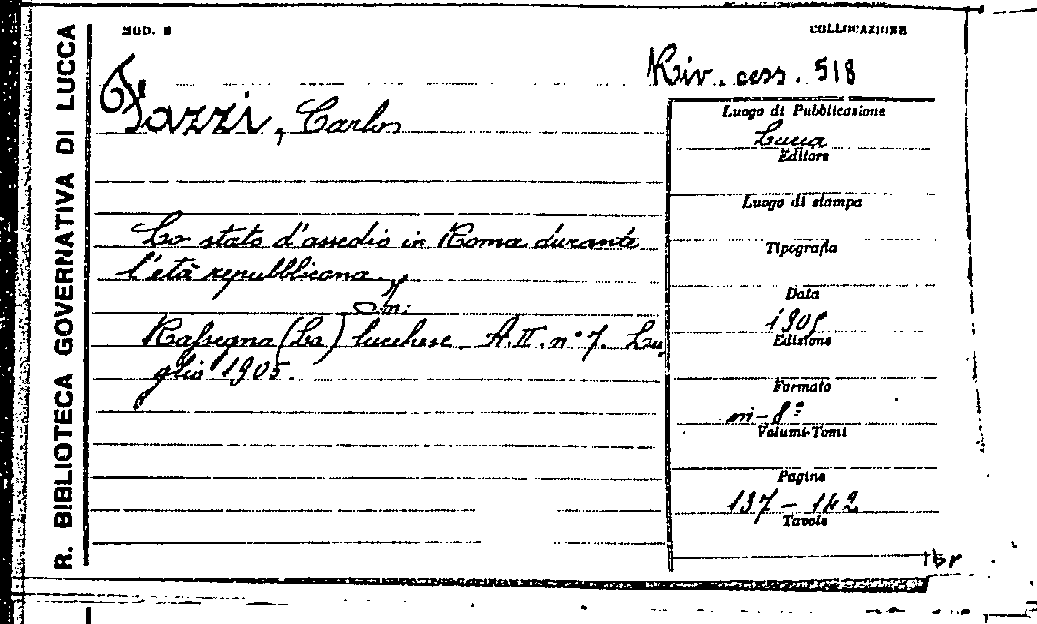 R. BIBLIOTECA GOVERNATIVA DI LUCCA
MOD. 8
COLLOCAZIONE
Riv. cess. 518
Fazzi, Carlos
Lo stato d'assedio in Roma durante
l'età repubblicana.
In:
Rassegna (La) lucchese. A. II. n° 7. Lu
glio 1905.
Luogo di Pubblicazione
Lucca
Editore
Luogo di stampa
Tipografia
Data
1905
Edizione
Formato
in-8°
Volumi-Tomi
Pagine
137-142
Tavole